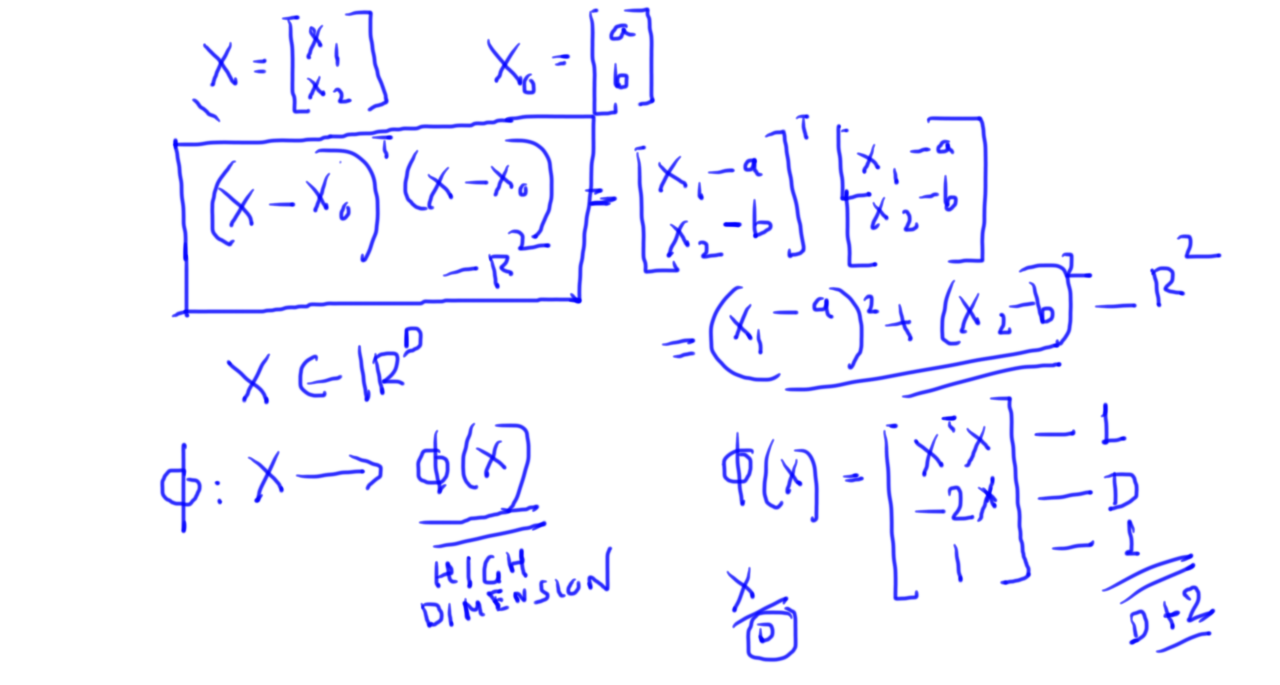 X = [x₁ x₂]   X₀ = [a b]
(X − X₀)ᵀ (X − X₀) − R² = [x₁ − a x₂ − b]ᵀ [x₁ − a x₂ − b]
= (x₁ − a)² + (x₂ − b)² − R²
X ∈ ℝᴰ
ϕ: X ⟶ ϕ(X)
HIGH
DIMENSION
ϕ(X) = [XᵀX −2X 1] — 1 — D — 1
X
D
D+2